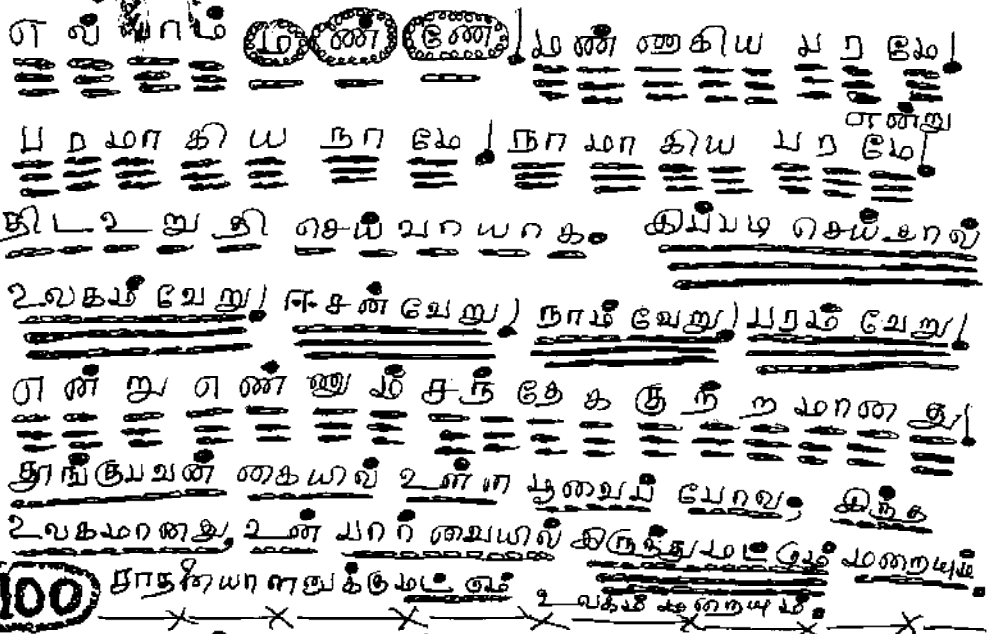 எல்லாம் மண்ணே! மண்ணாகிய பரமே!
என்று
பரமாகிய நாமே! நாமாகிய பரமே!
திடஉறுதி செய்வாயாக. இப்படி செய்தால்
உலகம் வேறு! ஈசன் வேறு! நாம் வேறு! பரம் வேறு!
என்று எண்ணும் சந்தேககுற்றமானது!
தூங்குபவன் கையில் உள்ள பூவைப் போல, இந்த
உலகமானது, உன் பார்வையில் இருந்துமட்டும் மறையும்.
100 சாதனையாளனுக்குமட்டும்
உலகம் மறையும்.